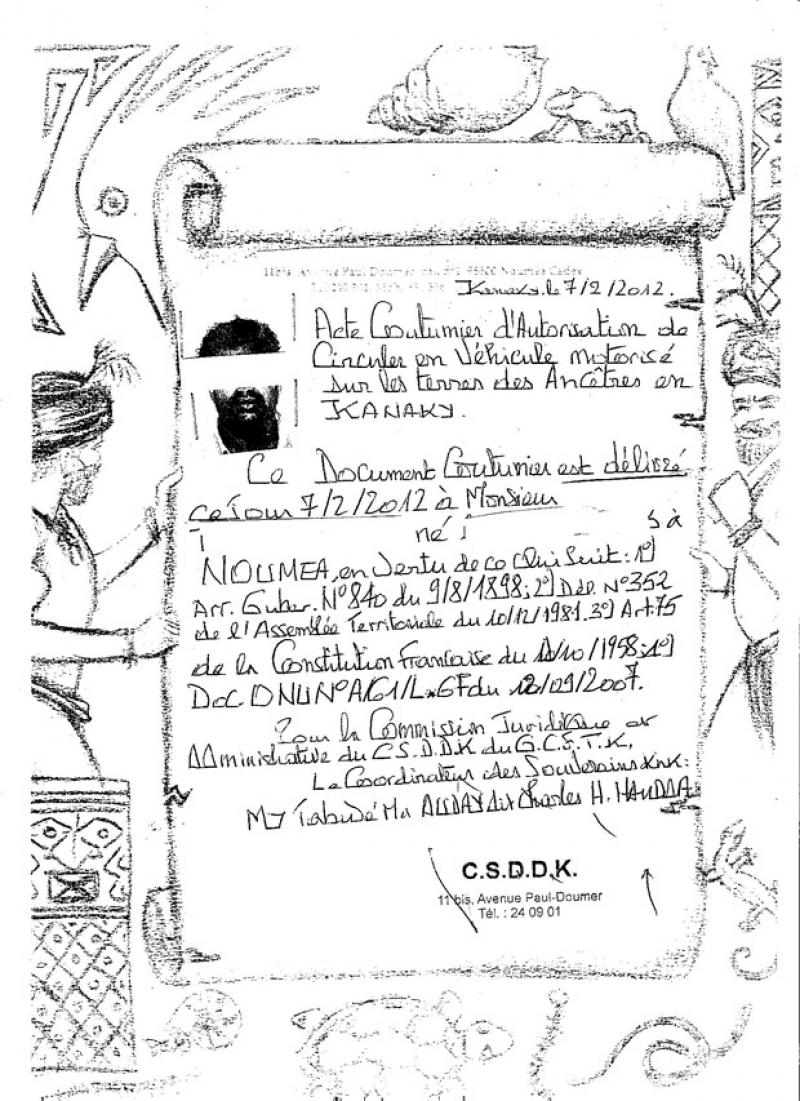 11bis, Avenue Paul Doumer 98800 Nouméa Cedex
Kanaky, le 7/2/2012.
Acte Coutumier d'Autorisation de
Circuler en Véhicule motorisé
sur les terres des Ancêtres en
KANAKY.
Ce Document Coutumier est délivré
ce jour 7/2/2012 à Monsieur
né
à
NOUMEA, en vertu de ce qui suit : 1°)
Arr. Guber. N°840 du 9/8/1898; 2°) Dél. N°352
de l'Assemblée Territoriale du 10/12/1981. 3°) Art.75
de la Constitution Française du /10/1958;
Doc ONU N°A/61/L. du /09/2007.
Pour la Commission Juridique et
Administrative du C.S.D.D.K du G.C.S.T.K,
Le Coordinateur des Souverains
Charles H.
C.S.D.D.K.
11 bis, Avenue Paul-Doumer
Tél. : 24 09 01